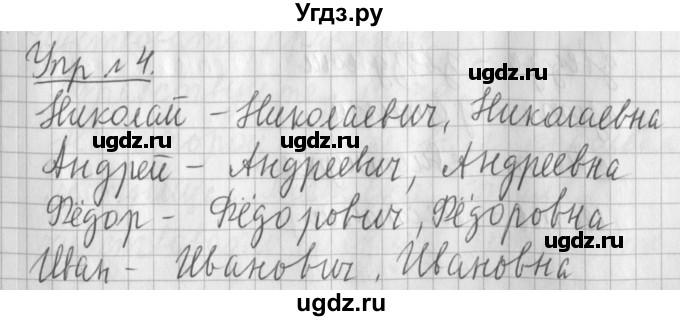 Угдз.ру
Упр № 4.
ugdz.ru
Николай – Николаевич, Николаевна
ugdz.ru ugdz.ru
Андрей – Андреевич, Андреевна
Фёдор – Фёдорович, Фёдоровна
ugdz.ru ugdz.ru
Иван – Иванович, Ивановна
ugdz.ru